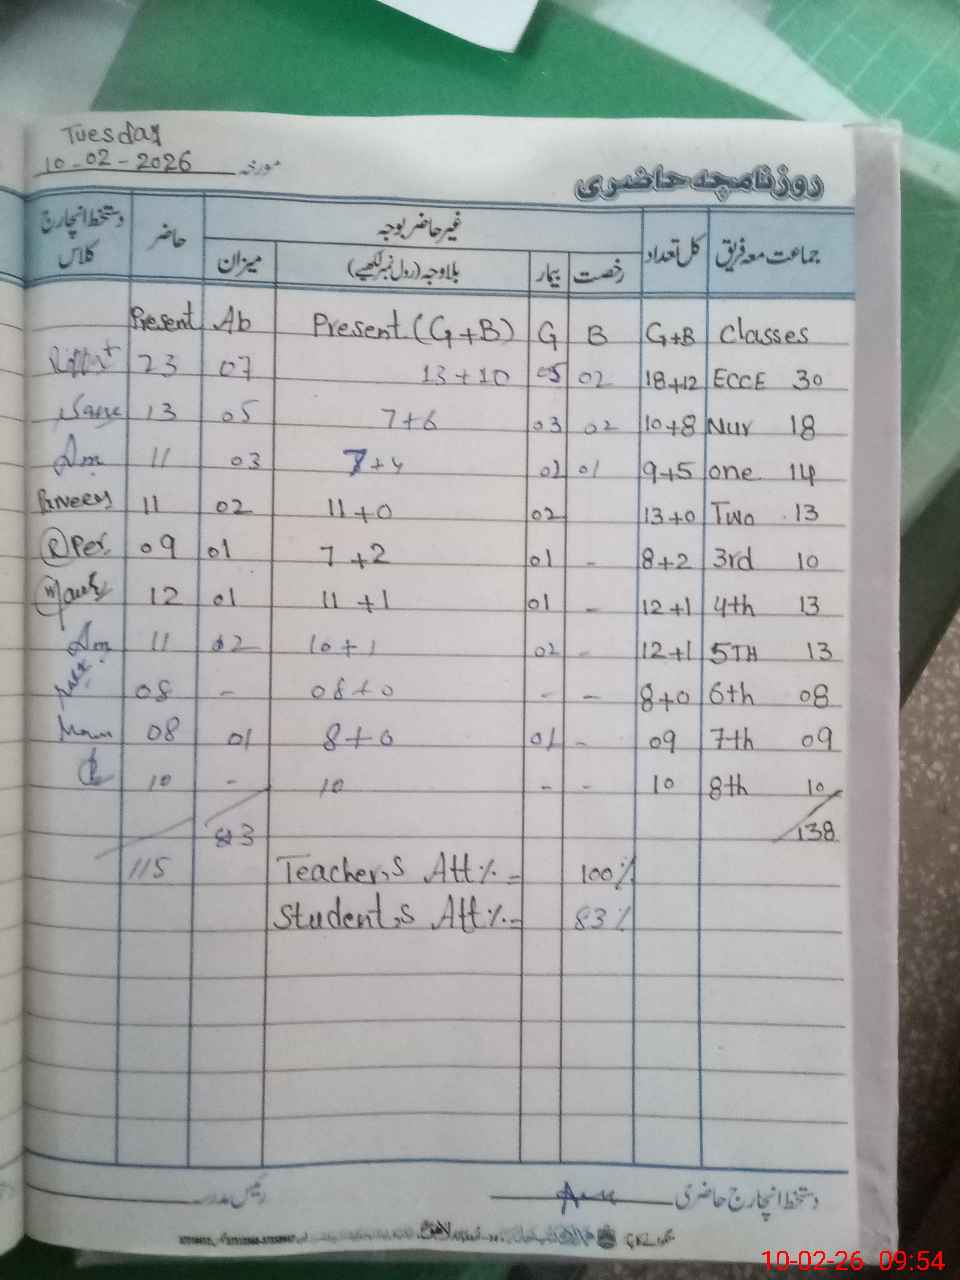 Tuesday
10-02-2026 مورخہ
روزنامچہ حاضری
دستخط انچارج کلاس حاضر غیر حاضر بوجہ کل تعداد جماعت معہ فریق
میزان بلاوجہ (رول نمبر لکھیے) بیمار رخصت
Present Ab Present (G+B) G B G+B Classes
23 07 13+10 05 02 18+12 ECCE 30
13 05 7+6 03 02 10+8 Nur 18
11 03 7+4 02 01 9+5 one 14
Parveen 11 02 11+0 02 13+0 Two 13
09 01 7+2 01 - 8+2 3rd 10
12 01 11+1 01 - 12+1 4th 13
11 02 10+1 02 - 12+1 5TH 13
08 - 08+0 - - 8+0 6th 08
08 01 8+0 01 - 09 7th 09
10 - 10 - - 10 8th 10
23 138
115 Teacher,s Att %. = 100%
Student,s Att %. = 83%
رئیس مدرسہ دستخط انچارج حاضری
10-02-26 09:54